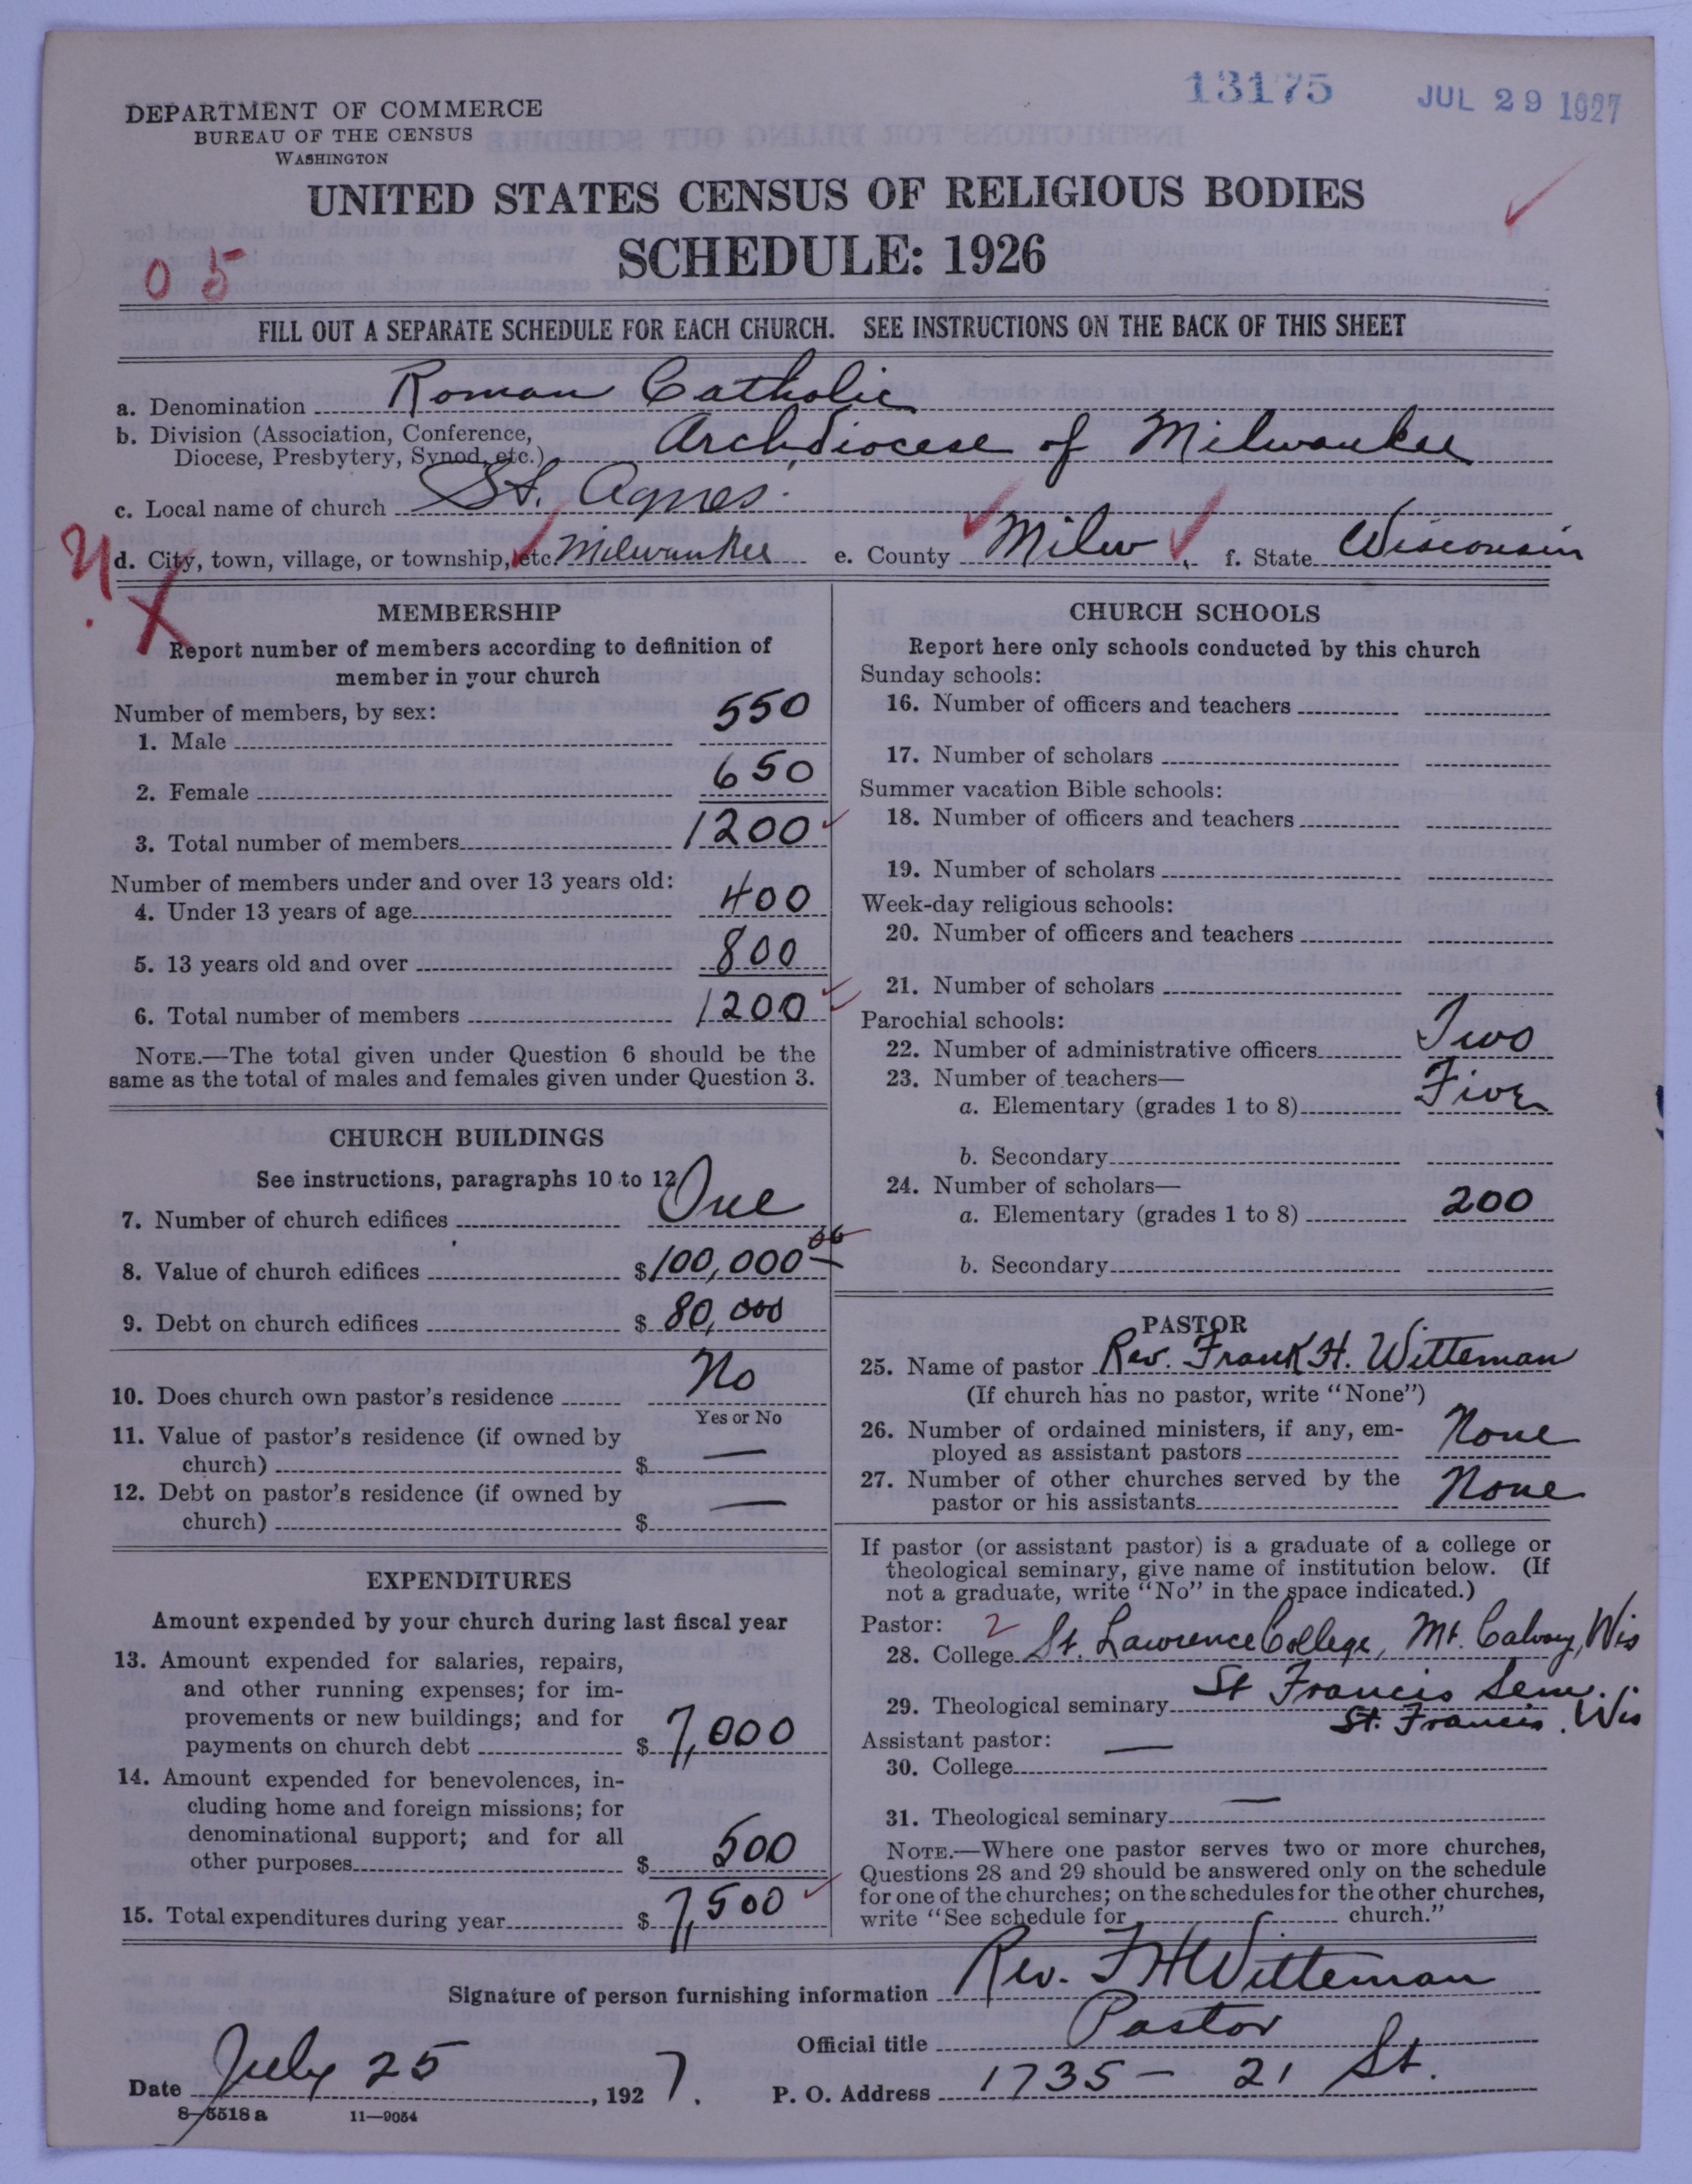 13175 JUL 29 1927
DEPARTMENT OF COMMERCE
BUREAU OF THE CENSUS
WASHINGTON
UNITED STATES CENSUS OF RELIGIOUS BODIES
SCHEDULE: 1926
05
FILL OUT A SEPARATE SCHEDULE FOR EACH CHURCH. SEE INSTRUCTIONS ON THE BACK OF THIS SHEET
a. Denomination Roman Catholic
b. Division (Association, Conference,
Diocese, Presbytery, Synod, etc.) Archdiocese of Milwaukee
c. Local name of church St. Agnes.
d. City, town, village, or township, etc. Milwaukee e. County Milw. f. State Wisconsin
MEMBERSHIP
Report number of members according to definition of
member in your church
Number of members, by sex:
1. Male 550
2. Female 650
3. Total number of members 1200
Number of members under and over 13 years old:
4. Under 13 years of age 400
5. 13 years old and over 800
6. Total number of members 1200
NOTE.—The total given under Question 6 should be the
same as the total of males and females given under Question 3.
CHURCH BUILDINGS
See instructions, paragraphs 10 to 12
7. Number of church edifices One
8. Value of church edifices $100,000 00
9. Debt on church edifices $ 80,000
10. Does church own pastor's residence No
Yes or No
11. Value of pastor's residence (if owned by
church) $ —
12. Debt on pastor's residence (if owned by
church) $ —
EXPENDITURES
Amount expended by your church during last fiscal year
13. Amount expended for salaries, repairs,
and other running expenses; for im-
provements or new buildings; and for
payments on church debt $ 7,000
14. Amount expended for benevolences, in-
cluding home and foreign missions; for
denominational support; and for all
other purposes $ 500
15. Total expenditures during year $ 7,500
CHURCH SCHOOLS
Report here only schools conducted by this church
Sunday schools:
16. Number of officers and teachers
17. Number of scholars
Summer vacation Bible schools:
18. Number of officers and teachers
19. Number of scholars
Week-day religious schools:
20. Number of officers and teachers
21. Number of scholars
Parochial schools:
22. Number of administrative officers Two
23. Number of teachers—
a. Elementary (grades 1 to 8) Five
b. Secondary
24. Number of scholars—
a. Elementary (grades 1 to 8) 200
b. Secondary
PASTOR
25. Name of pastor Rev. Frank H. Witteman
(If church has no pastor, write "None")
26. Number of ordained ministers, if any, em-
ployed as assistant pastors None
27. Number of other churches served by the
pastor or his assistants None
If pastor (or assistant pastor) is a graduate of a college or
theological seminary, give name of institution below. (If
not a graduate, write "No" in the space indicated.)
Pastor: 2
28. College St. Lawrence College, Mt. Calvary, Wis
29. Theological seminary St Francis Sem.
St. Francis, Wis
Assistant pastor: —
30. College
31. Theological seminary —
NOTE.—Where one pastor serves two or more churches,
Questions 28 and 29 should be answered only on the schedule
for one of the churches; on the schedules for the other churches,
write "See schedule for church."
Signature of person furnishing information Rev. F H Witteman
Official title Pastor
Date July 25, 1927. P. O. Address 1735 - 21 St.
8—5518 a 11—9054